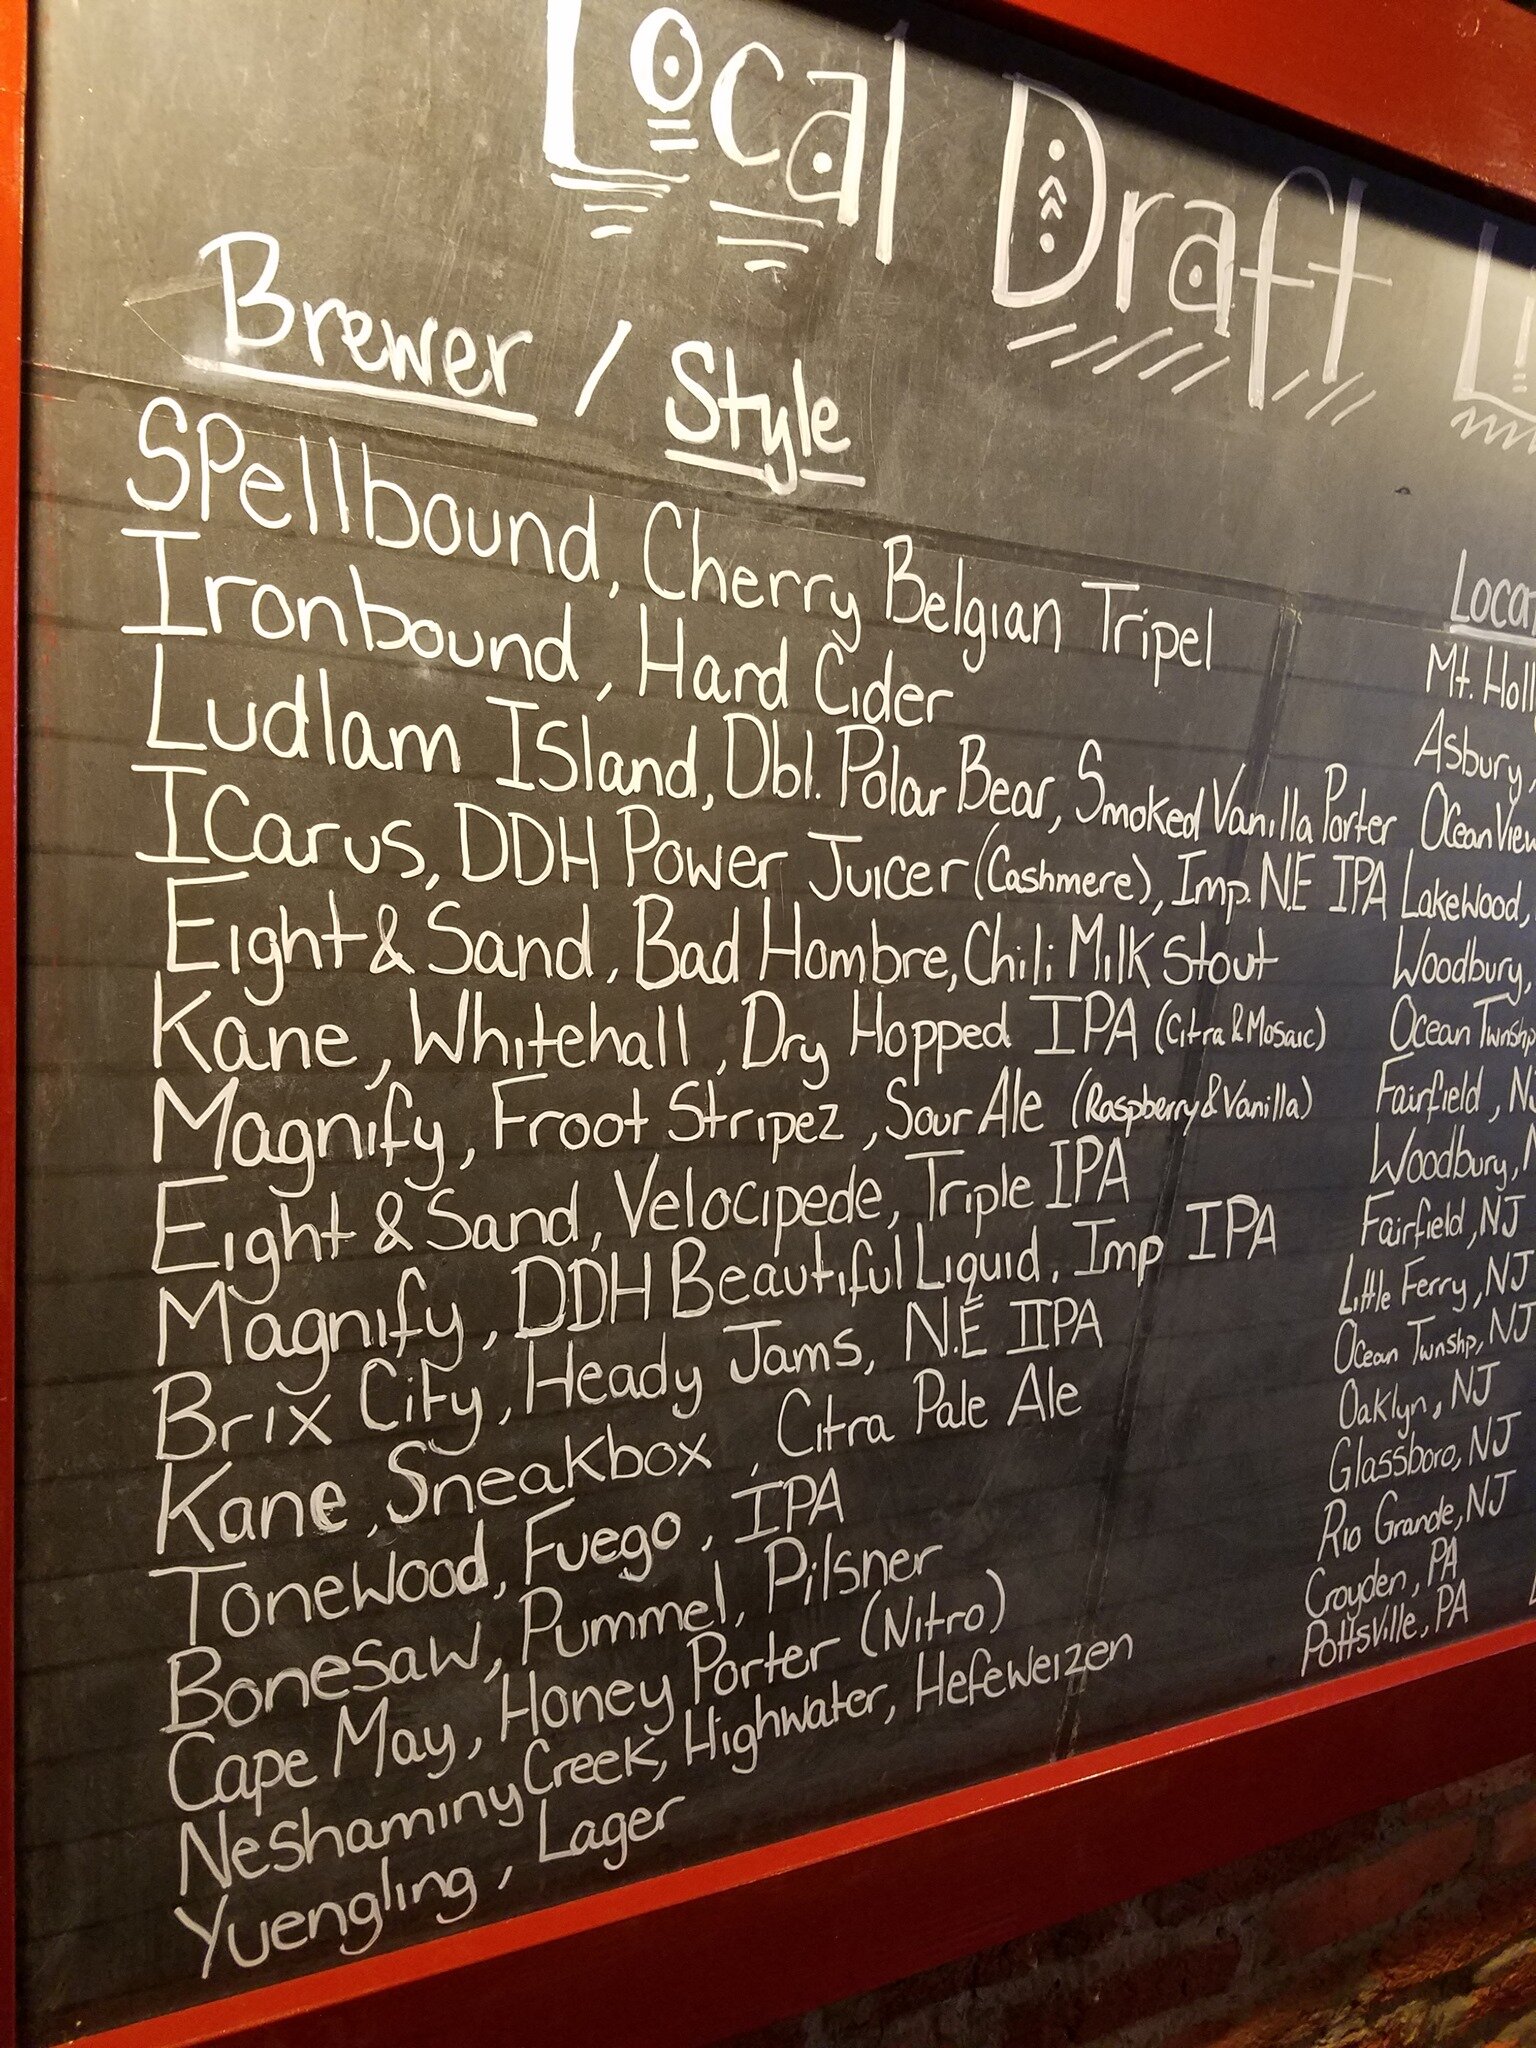 Local Draft Li
Brewer / Style
Loca
Spellbound, Cherry Belgian Tripel Mt. Holl
Ironbound, Hard Cider Asbury,
Ludlam Island, Dbl. Polar Bear, Smoked Vanilla Porter Ocean View
Icarus, DDH Power Juicer (Cashmere), Imp. N.E IPA Lakewood,
Eight & Sand, Bad Hombre, Chili Milk Stout Woodbury,
Kane, Whitehall, Dry Hopped IPA (Citra & Mosaic) Ocean Twnship
Magnify, Froot Stripez, Sour Ale (Raspberry & Vanilla) Fairfield, NJ
Eight & Sand, Velocipede, Triple IPA Woodbury, N
Magnify, DDH Beautiful Liquid, Imp IPA Fairfield, NJ
Brix City, Heady Jams, N.E IIPA Little Ferry, NJ
Kane, Sneakbox, Citra Pale Ale Ocean Twnshp, NJ
Tonewood, Fuego, IPA Oaklyn, NJ
Bonesaw, Pummel, Pilsner Glassboro, NJ
Cape May, Honey Porter (Nitro) Rio Grande, NJ
Neshaminy Creek, Highwater, Hefeweizen Croyden, PA
Yuengling, Lager Pottsville, PA